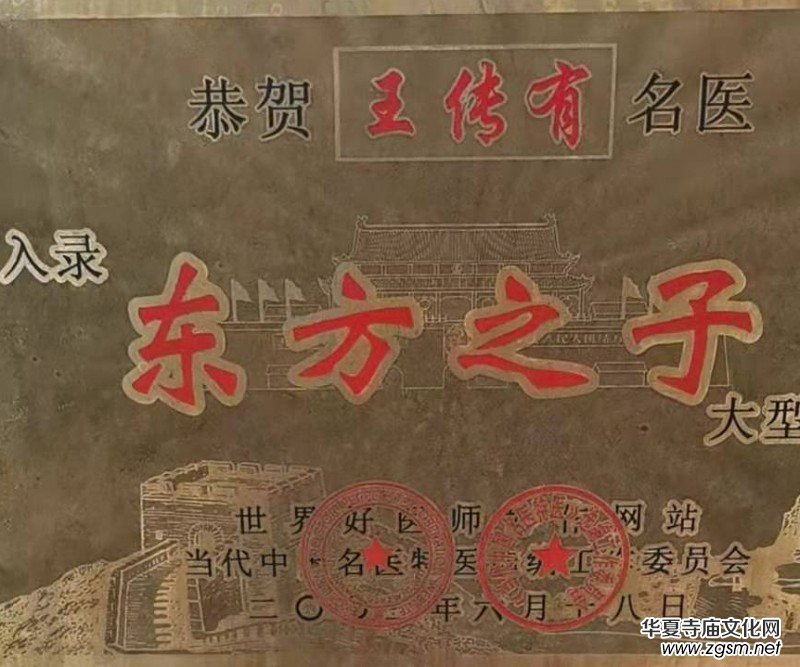 恭贺 王传有 名医
入录
东方之子
大型
世界好医师 网站
当代中 名医特医 委员会
二〇 年六月十八日
华夏寺庙文化网
www.zgsm.net